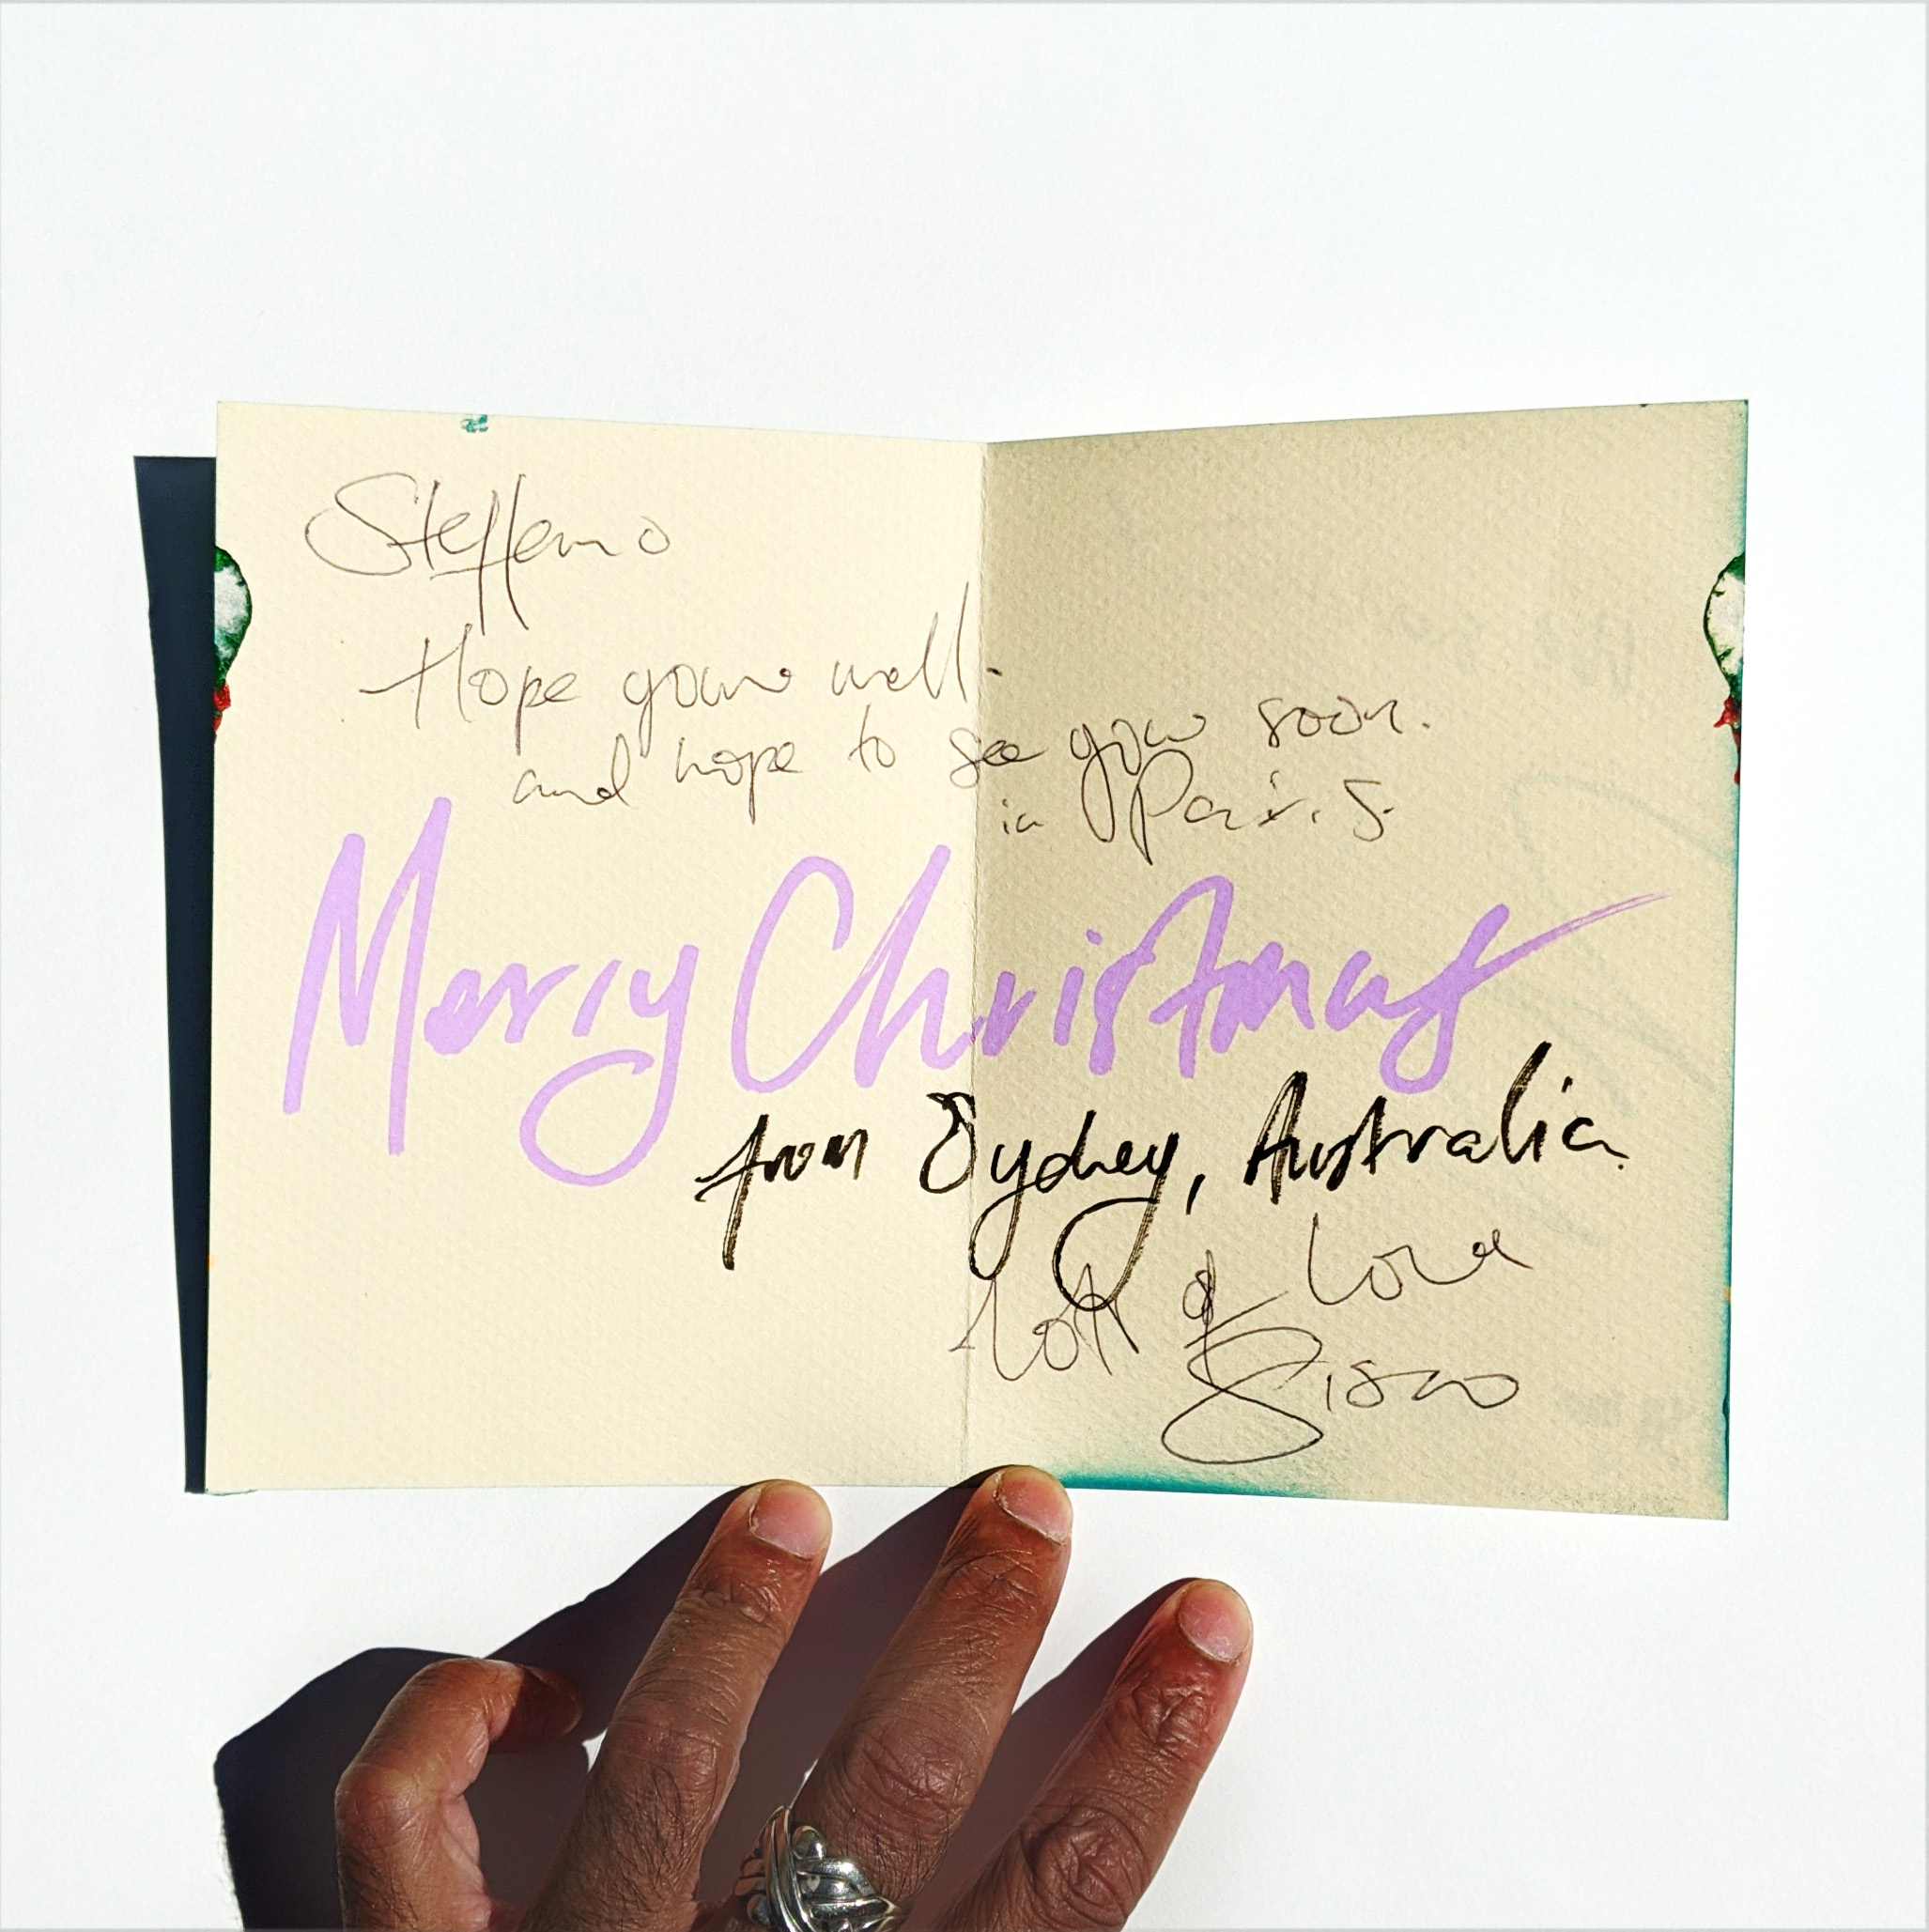 Steffano
Hope youre well.
and hope to see you soon.
in Paris.
Merry Christmas
from Sydney, Australia.
Lots of Love